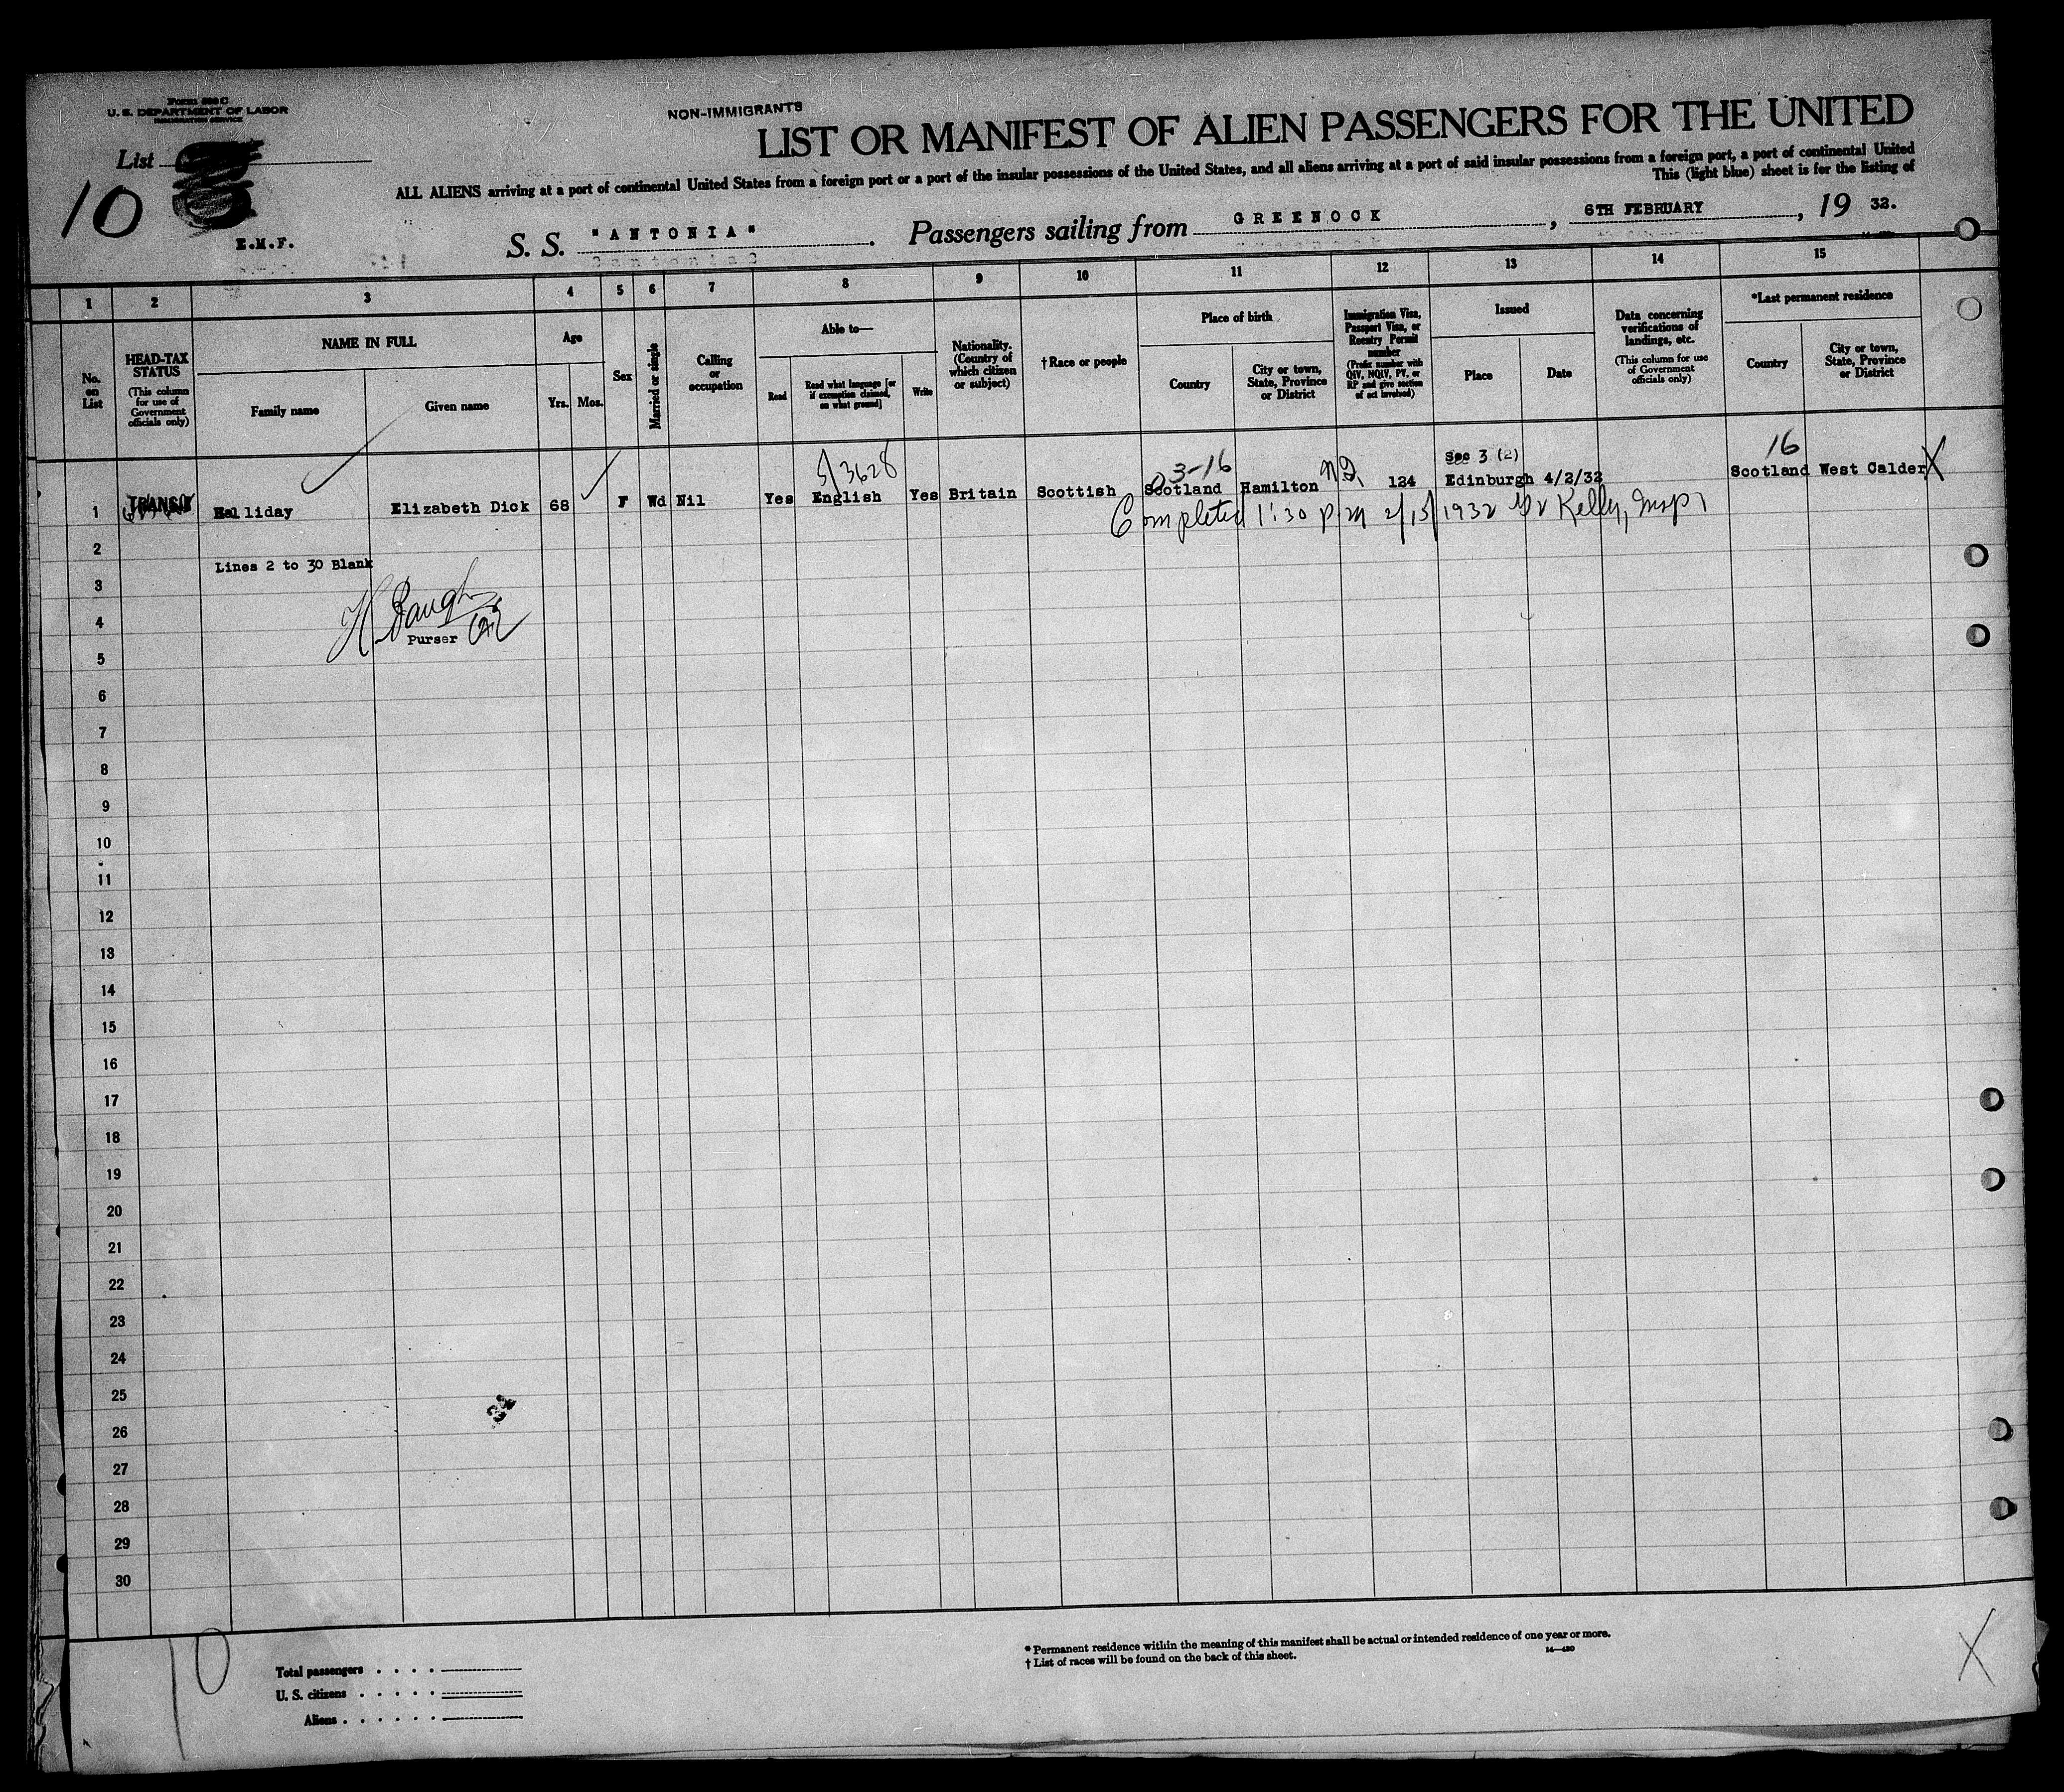 Form 500 C
U. S. DEPARTMENT OF LABOR
IMMIGRATION SERVICE
NON-IMMIGRANTS
LIST OR MANIFEST OF ALIEN PASSENGERS FOR THE UNITED
List
10
ALL ALIENS arriving at a port of continental United States from a foreign port or a port of the insular possessions of the United States, and all aliens arriving at a port of said insular possessions from a foreign port, a port of continental United
This (light blue) sheet is for the listing of
E.M.F.
S. S. "ANTONIA". Passengers sailing from GREENOCK, 6TH FEBRUARY, 19 32.
1 2 3 4 5 6 7 8 9 10 11 12 13 14 15
No. on List
HEAD-TAX STATUS
(This column for use of Government officials only)
NAME IN FULL
Family name
Given name
Age
Yrs. Mos.
Sex
Married or single
Calling or occupation
Able to—
Read
Read what language [or if exemption claimed, on what ground]
Write
Nationality. (Country of which citizen or subject)
† Race or people
Place of birth
Country
City or town, State, Province or District
Immigration Visa, Passport Visa, or Reentry Permit number
(Prefix number with QIV, NQIV, PV, or RP and give section of act involved)
Issued
Place
Date
Data concerning verifications of landings, etc.
(This column for use of Government officials only)
*Last permanent residence
Country
City or town, State, Province or District
5/3628 3-16 Sec 3 (2) 16
1 TRANSIT Halliday Elizabeth Dick 68 F Wd Nil Yes English Yes Britain Scottish Scotland Hamilton 124 Edinburgh 4/2/32 Scotland West Calder X
Completed 1:30 PM 2/15/1932 Kelly, Insp
2
Lines 2 to 30 Blank
3
4
H Baugh
Purser
5
6
7
8
9
10
11
12
13
14
15
16
17
18
19
20
21
22
23
24
25
26
27
28
29
30
10
Total passengers
U. S. citizens
Aliens
* Permanent residence within the meaning of this manifest shall be actual or intended residence of one year or more.
† List of races will be found on the back of this sheet.
14—430
X